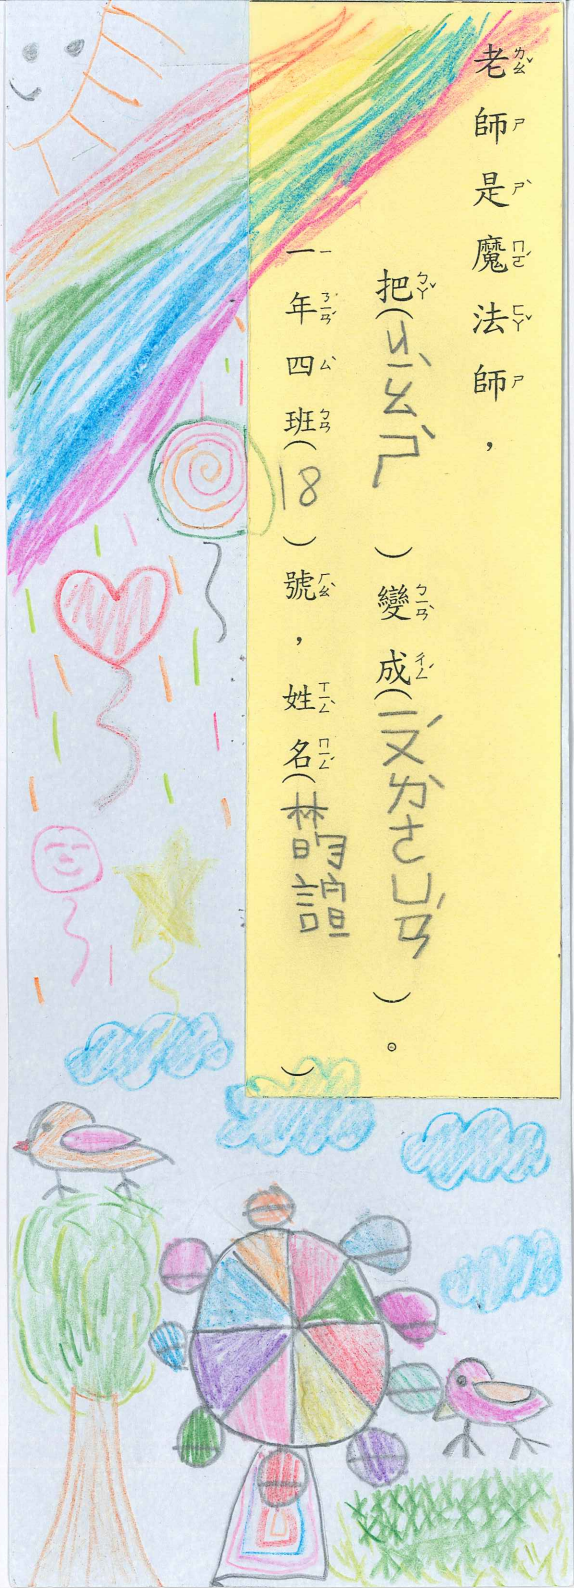 老師是魔法師，
把(ㄐㄧㄠˋㄕˋ)變成(ㄧㄡˊㄌㄜˋㄩㄢˊ)。
一年四班(18)號，姓名( )